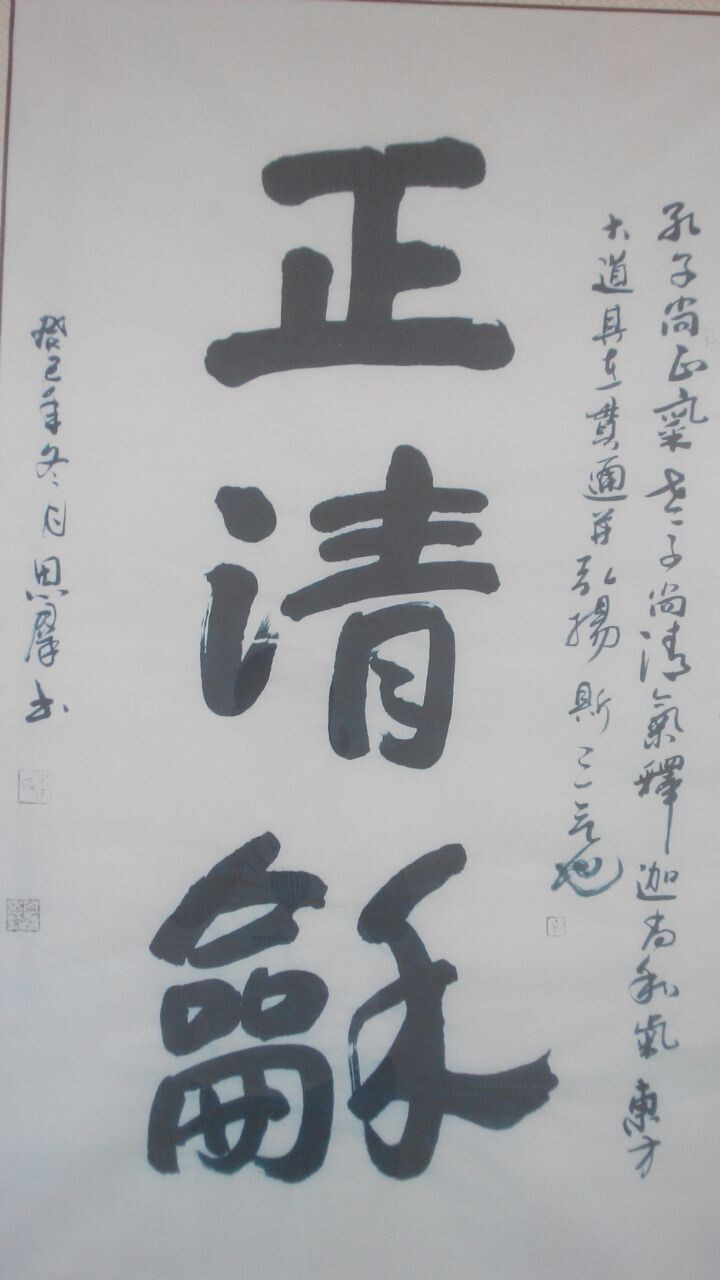 孔子尚正氣老子尚清氣釋迦尚和氣東方
大道其在貫通并弘揚斯三气也
正清龢
癸巳年冬月思羣书